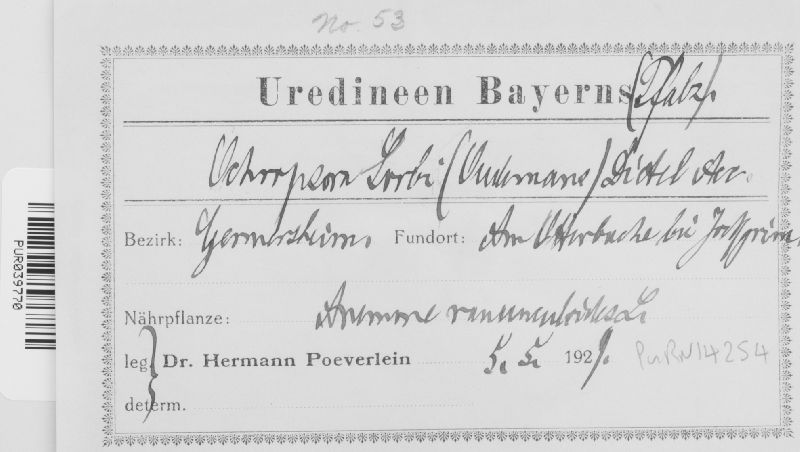 No. 53
Uredineen Bayerns (Pfalz).
Ochropsora Sorbi (Oudemans) Dietel Aec.
Bezirk: Germersheim. Fundort: Am Otterbache bei Jockgrim.
Nährpflanze: Anemone ranunculoides L.
leg. Dr. Hermann Poeverlein 5. 5. 1929.
determ.
PurRN14254
PUR039770